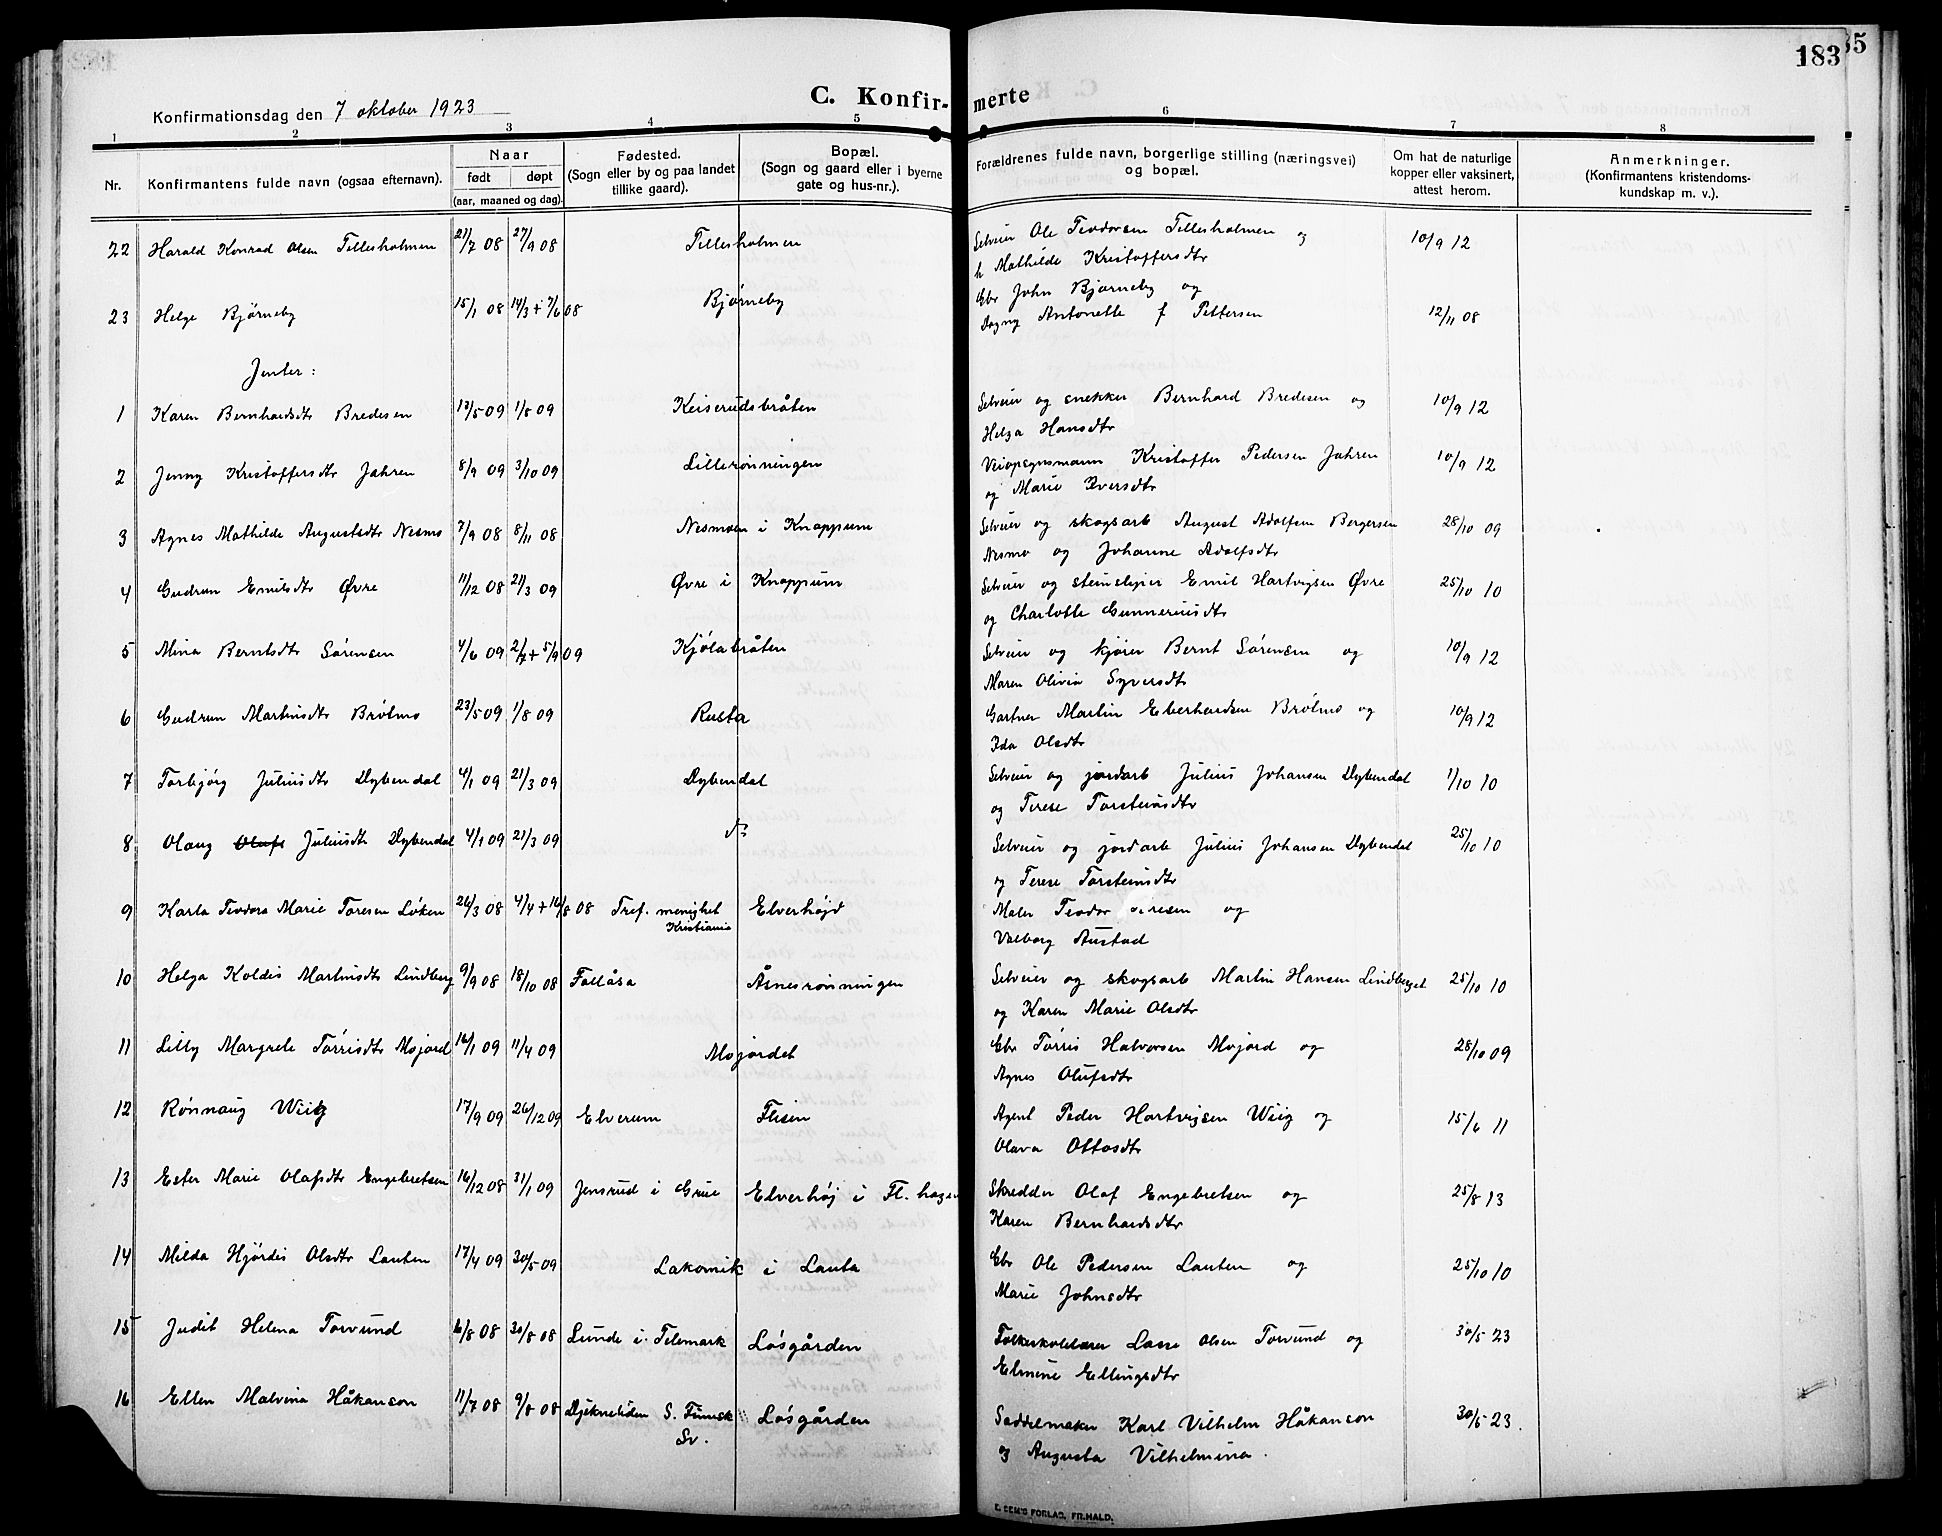 183
35
C. Konfir-merte
Konfirmationsdag den 7 oktober 1923
1 2 3 4 5 6 7 8
Nr. Konfirmantens fulde navn (ogsaa efternavn). Naar født døpt (aar, maaned og dag). Fødested. (Sogn eller by og paa landet tillike gaard). Bopæl. (Sogn og gaard eller i byerne gate og hus-nr.). Forældrenes fulde navn, borgerlige stilling (næringsvei) og bopæl. Om hat de naturlige kopper eller vaksinert, attest herom. Anmerkninger. (Konfirmantens kristendoms-kundskap m. v.).
22 Harald Konrad Olsen Tillesholmen 21/7 08 27/9 08 Tillesholmen Selveier Ole Teodorsen Tillesholmen og 10/9 12
h Mathilde Kristoffersdtr
23 Helge Bjørneby 15/1 08 14/3 + 7/6 08 Bjørneby Gbr John Bjørneby og 12/11 08
Dagny Antonette f Pettersen
Jenter:
1 Karen Bernhardsdtr Bredesen 13/5 09 1/8 09 Keiserudsbråten Selveier og snekker Bernhard Bredesen og 10/9 12
Helga Hansdtr
2 Jenny Kristoffersdtr Jahren 8/9 09 3/10 09 Lillerønningen Veiopsynsmann Kristoffer Pedersen Jahren 10/9 12
og Marie Iversdtr
3 Agnes Mathilde Augustsdtr Nesmo 7/9 08 8/11 08 Nesmoen i Knappum Selveier og skogsarb August Adolfsen Bergersen 28/10 09
Nesmo og Johanne Adolfsdtr
4 Gudrun Emilsdtr Øvre 11/12 08 21/3 09 Øvre i Knappum Selveier og steinslejer Emil Hartvigsen Øvre 25/10 10
og Charlotte Gunneriusdtr
5 Mina Berntsdtr Sørensen 4/6 09 2/7 + 5/9 09 Kjølabråten Selveier og kjører Bernt Sørensen og 10/9 12
Maren Olivia Syversdtr
6 Gudrun Martinsdtr Brølmo 23/5 09 1/8 09 Rusta Gartner Martin Eberhardsen Brølmo og 10/9 12
Ida Olsdtr
7 Torbjørg Juliusdtr Dybendal 4/1 09 21/3 09 Dybendal Selveier og jordarb Julius Johansen Dybendal 1/10 10
og Terese Torsteinsdtr
8 Olaug Olufs Juliusdtr Dybendal 4/1 09 21/3 09 do Selveier og jordarb Julius Johansen Dybendal 25/10 10
og Terese Torsteinsdtr
9 Karla Teodora Marie Toresen Løken 26/3 08 4/4 + 16/8 08 Tref. menighet Kristiania Elverhøjd Maler Teodor og
Valborg Austad
10 Helga Koldis Martinsdtr Lindberg 9/9 08 18/10 08 Fallåsa Åsnesrønningen Selveier og skogsarb Martin Hansen Lindberget 25/10 10
og Karen Marie Olsdtr
11 Lilly Margrete Tørrisdtr Mojord 16/1 09 11/4 09 Mojordet Gbr Tørris Halvorsen Mojord og 28/10 09
Agnes Olufsdtr
12 Rønnaug Wiig 17/9 09 26/12 09 Elverum Flisen Agent Peder Hartvigsen Wiig og 15/6 11
Olava Ottosdtr
13 Ester Marie Olafsdtr Engebretsen 16/12 08 31/1 09 Jensrud i Grue Elverhøj i Fl. hagen Skredder Olaf Engebretsen og 25/8 13
Karen Bernhardsdtr
14 Milda Hjørdis Olsdtr Lauten 17/4 09 30/5 09 Lakomik i Lauta Gbr Ole Pedersen Lauten og 25/10 10
Marie Johnsdtr
15 Judit Helena Torvund 6/8 08 30/8 08 Lunde i Telemark Løsgården Folkeskolelærer Lasse Olsen Torvund og 30/5 23
Elmine Ellingsdtr
16 Ellen Malvina Håkanson 11/7 08 9/8 08 Djekneliden S. Finnsk Sv. Løsgården Saddelmaker Karl Vilhelm Håkanson 30/5 23.
og Augusta Vilhelmina.
E. SEM'S FORLAG, FR.HALD.